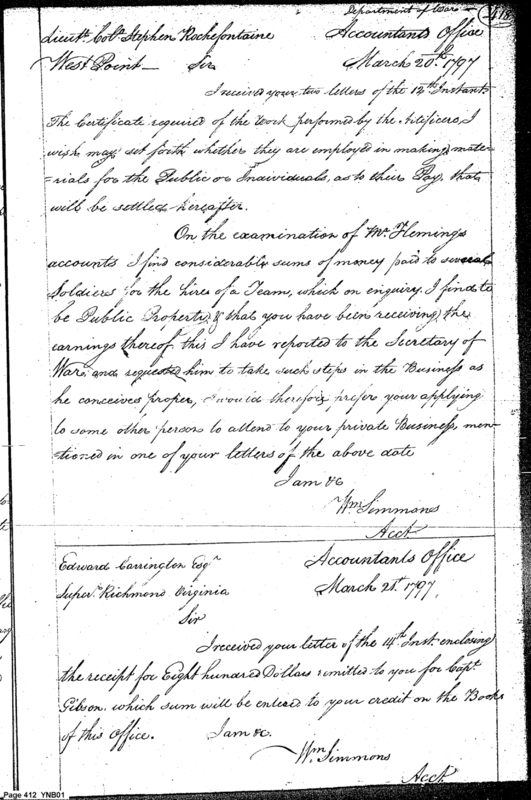 Department of War
418
Lieut. Colo. Stephen Rochefontaine Accountants Office
West Point — Sir March 20th. 1797
I received your two letters of the 12th Instant
The Certificate required of the work performed by the Artificers, I
wish may set forth whether they are employed in making mate-
=rials for the Public or Individuals, as to their Pay, that
will be settled hereafter.
On the examination of Mr. Flemings
accounts I find considerable sums of money paid to several
Soldiers for the hire of a Team, which on enquiry I find to
be Public Property, & that you have been receiving the
earnings thereof this I have reported to the Secretary of
War and requested him to take such steps in the Business as
he conceives proper, I would therefore prefer your applying
to some other person to attend to your private Business, men-
tioned in one of your letters of the above date
I am &c
Wm Simmons
Acct.
Edward Carrington Esqr Accountants Office
Super. Richmond Virginia March 21st. 1797.
Sir
I received your letter of the 14th Inst. enclosing
the receipt for Eight hundred Dollars remitted to you for Capt.
Gibson which sum will be entered to your credit on the Books
of this Office. I am &c.
Wm. Simmons
Acct.
Page 412 YNB01